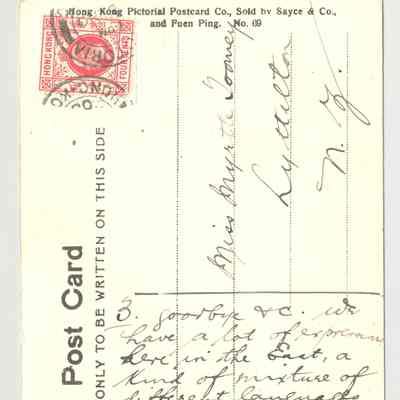 Hong Kong Pictorial Postcard Co., Sold by Sayce & Co.,
and Fuen Ping. No. 69
HONG KONG
FOUR CENTS
VICTORIA
HONG-KO
Post Card
ONLY TO BE WRITTEN ON THIS SIDE
Miss Myrtle Toomey
Lyttelton
N. Z.
3. goodbye &c. We
have a lot of expressin
here in the East, a
kind of mixture of
different languages